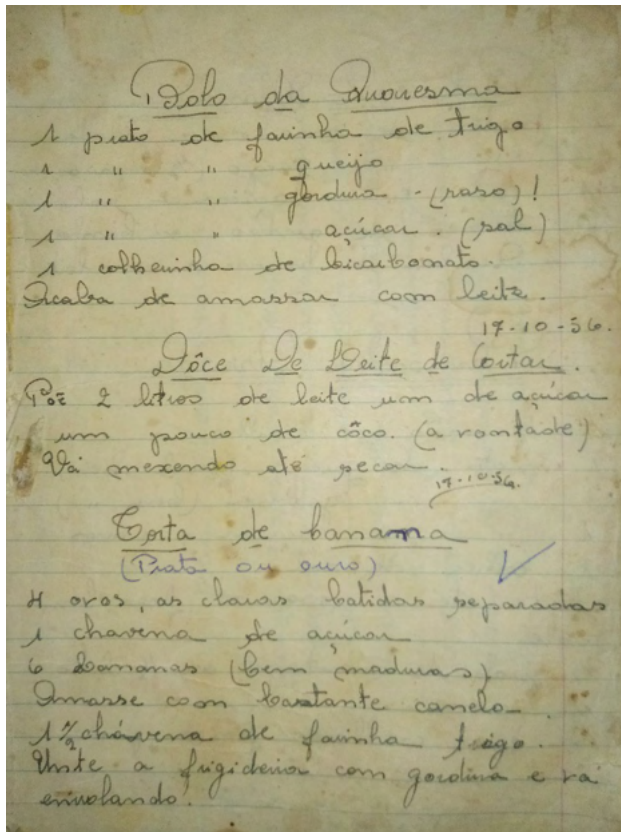 Bolo da Quaresma
1 prato de farinha de trigo
1 " " queijo
1 " " gordura - (raso)!
1 " " açúcar. (sal)
1 colherinha de bicarbonato.
Acaba de amassar com leite.
17-10-56.
Dôce De Leite de Cortar.
Põe 2 litros de leite um de açúcar
um pouco de côco. (a vontade)
Vá mexendo até secar.
17-10-56.
Torta de banana
(Prata ou ouro)
4 ovos, as claras batidas separadas
1 chavena de açúcar
6 Bananas (bem maduras)
Amasse com bastante canela
1 1/2 chávena de farinha trigo.
Unte a frigideira com gordura e vá
enrolando.